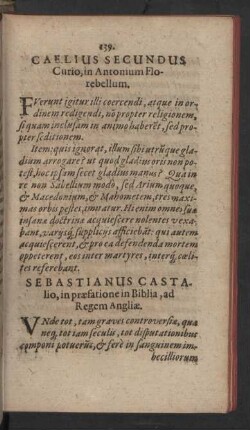 139.
CAELIUS SECUNDUS
Curio, in Antonium Flo-
rebellum.
FVerunt igitur illi coercendi, atque in or-
dinem redigendi, nō propter religionem,
si quam inclusam in animo haberēt, sed pro-
pter seditionem.
Item: quis ignorat, illum sibi utrūque gla-
dium arrogare? ut quod gladim oris non po-
test, hoc ipsam secet gladius manus? Qua in
re non Sabellium modo, sed Arium quoque,
& Macedonium, & Mahometem, tres maxi-
mas orbis pestes, imitatur. Hi enim omnes suæ
insanæ doctrinæ acquiescere nolentes vexa-
bant, varijsq; supplicijs afficiebāt: qui autem
acquiescerent, & pro ea defendenda mortem
oppeterent, eos inter martyres, interq; cæli-
tes referebant.
SEBASTIANUS CASTA-
lio, in præfatione in Biblia, ad
Regem Angliæ.
VNde tot, tam graves controversiæ, quæ
neq; tot iam seculis, tot disputationibus
componi potuerūt, & ferè in sanguinem im-
becilliorum